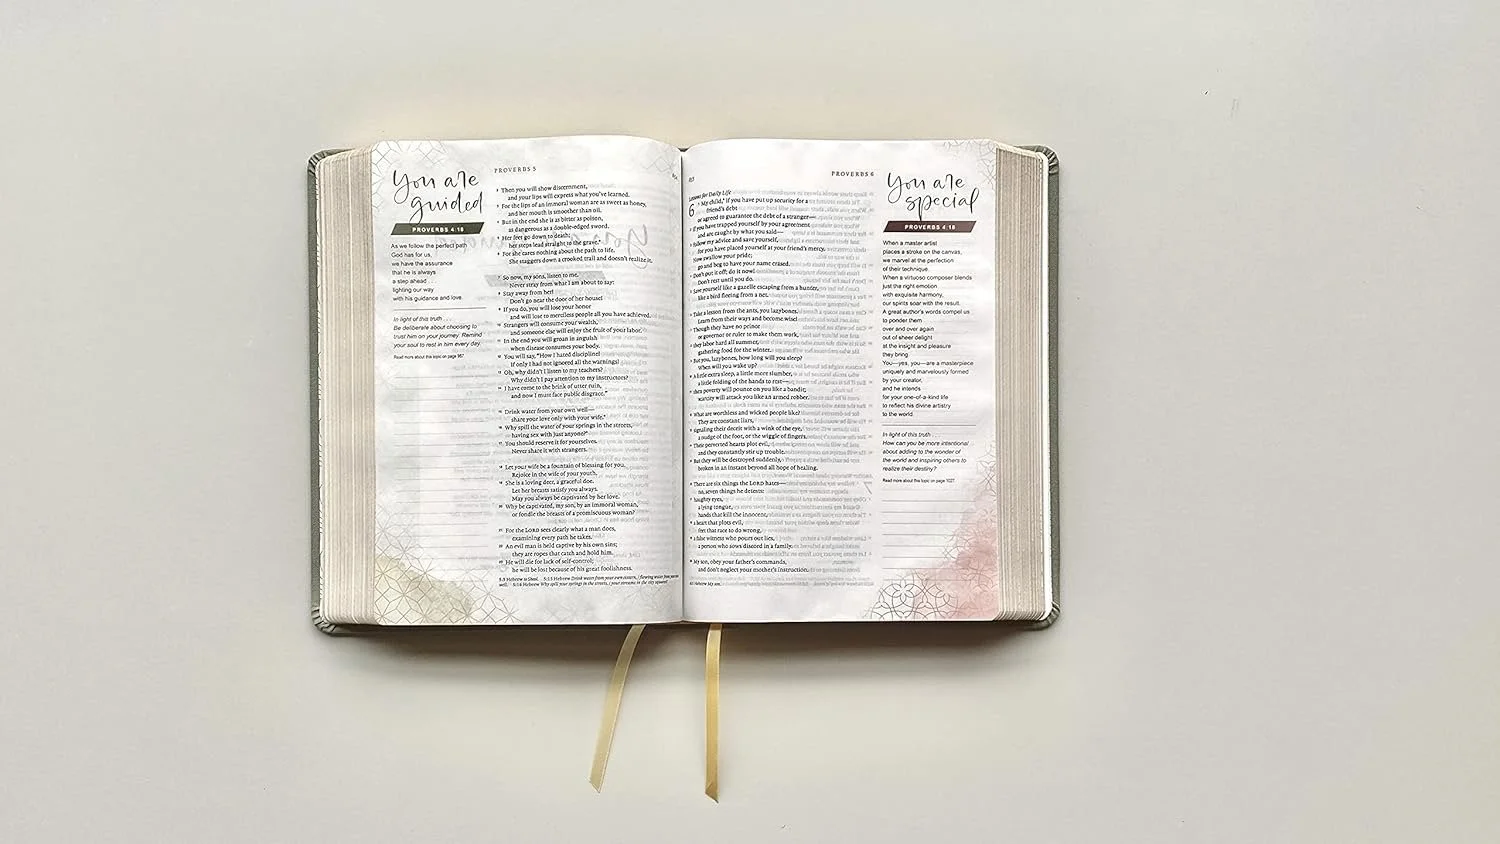 You are
guided
PROVERBS 4:18
As we follow the perfect path
God has for us,
we have the assurance
that he is always
a step ahead . . .
lighting our way
with his guidance and love.
In light of this truth . . .
Be deliberate about choosing to
trust him on your journey. Remind
your soul to rest in him every day.
Read more about this topic on page 967.
PROVERBS 5
2 Then you will show discernment,
and your lips will express what you've learned.
3 For the lips of an immoral woman are as sweet as honey,
and her mouth is smoother than oil.
4 But in the end she is as bitter as poison,
as dangerous as a double-edged sword.
5 Her feet go down to death;
her steps lead straight to the grave.*
6 For she cares nothing about the path to life.
She staggers down a crooked trail and doesn't realize it.
7 So now, my sons, listen to me.
Never stray from what I am about to say:
8 Stay away from her!
Don't go near the door of her house!
9 If you do, you will lose your honor
and will lose to merciless people all you have achieved.
10 Strangers will consume your wealth,
and someone else will enjoy the fruit of your labor.
11 In the end you will groan in anguish
when disease consumes your body.
12 You will say, "How I hated discipline!
If only I had not ignored all the warnings!
13 Oh, why didn't I listen to my teachers?
Why didn't I pay attention to my instructors?
14 I have come to the brink of utter ruin,
and now I must face public disgrace."
15 Drink water from your own well—
share your love only with your wife.*
16 Why spill the water of your springs in the streets,
having sex with just anyone?*
17 You should reserve it for yourselves.
Never share it with strangers.
18 Let your wife be a fountain of blessing for you.
Rejoice in the wife of your youth.
19 She is a loving deer, a graceful doe.
Let her breasts satisfy you always.
May you always be captivated by her love.
20 Why be captivated, my son, by an immoral woman,
or fondle the breasts of a promiscuous woman?
21 For the LORD sees clearly what a man does,
examining every path he takes.
22 An evil man is held captive by his own sins;
they are ropes that catch and hold him.
23 He will die for lack of self-control;
he will be lost because of his great foolishness.
5:5 Hebrew to Sheol. 5:15 Hebrew Drink water from your own cistern, / flowing water from your own
well. 5:16 Hebrew Why spill your springs in the streets, / your streams in the city squares?
PROVERBS 6
Lessons for Daily Life
6 1 My child,* if you have put up security for a
friend's debt
or agreed to guarantee the debt of a stranger—
2 if you have trapped yourself by your agreement
and are caught by what you said—
3 follow my advice and save yourself,
for you have placed yourself at your friend's mercy.
Now swallow your pride;
go and beg to have your name erased.
4 Don't put it off; do it now!
Don't rest until you do.
5 Save yourself like a gazelle escaping from a hunter,
like a bird fleeing from a net.
6 Take a lesson from the ants, you lazybones.
Learn from their ways and become wise!
7 Though they have no prince
or governor or ruler to make them work,
8 they labor hard all summer,
gathering food for the winter.
9 But you, lazybones, how long will you sleep?
When will you wake up?
10 A little extra sleep, a little more slumber,
a little folding of the hands to rest—
11 then poverty will pounce on you like a bandit;
scarcity will attack you like an armed robber.
12 What are worthless and wicked people like?
They are constant liars,
13 signaling their deceit with a wink of the eye,
a nudge of the foot, or the wiggle of fingers.
14 Their perverted hearts plot evil,
and they constantly stir up trouble.
15 But they will be destroyed suddenly,
broken in an instant beyond all hope of healing.
16 There are six things the LORD hates—
no, seven things he detests:
17 haughty eyes,
a lying tongue,
hands that kill the innocent,
18 a heart that plots evil,
feet that race to do wrong,
19 a false witness who pours out lies,
a person who sows discord in a family.
20 My son, obey your father's commands,
and don't neglect your mother's instruction.
6:1 Hebrew My son.
You are
special
PROVERBS 4:18
When a master artist
places a stroke on the canvas,
we marvel at the perfection
of their technique.
When a virtuoso composer blends
just the right emotion
with exquisite harmony,
our spirits soar with the result.
A great author's words compel us
to ponder them
over and over again
out of sheer delight
at the insight and pleasure
they bring.
You—yes, you—are a masterpiece
uniquely and marvelously formed
by your creator,
and he intends
for your one-of-a-kind life
to reflect his divine artistry
to the world.
In light of this truth . . .
How can you be more intentional
about adding to the wonder of
the world and inspiring others to
realize their destiny?
Read more about this topic on page 1027.